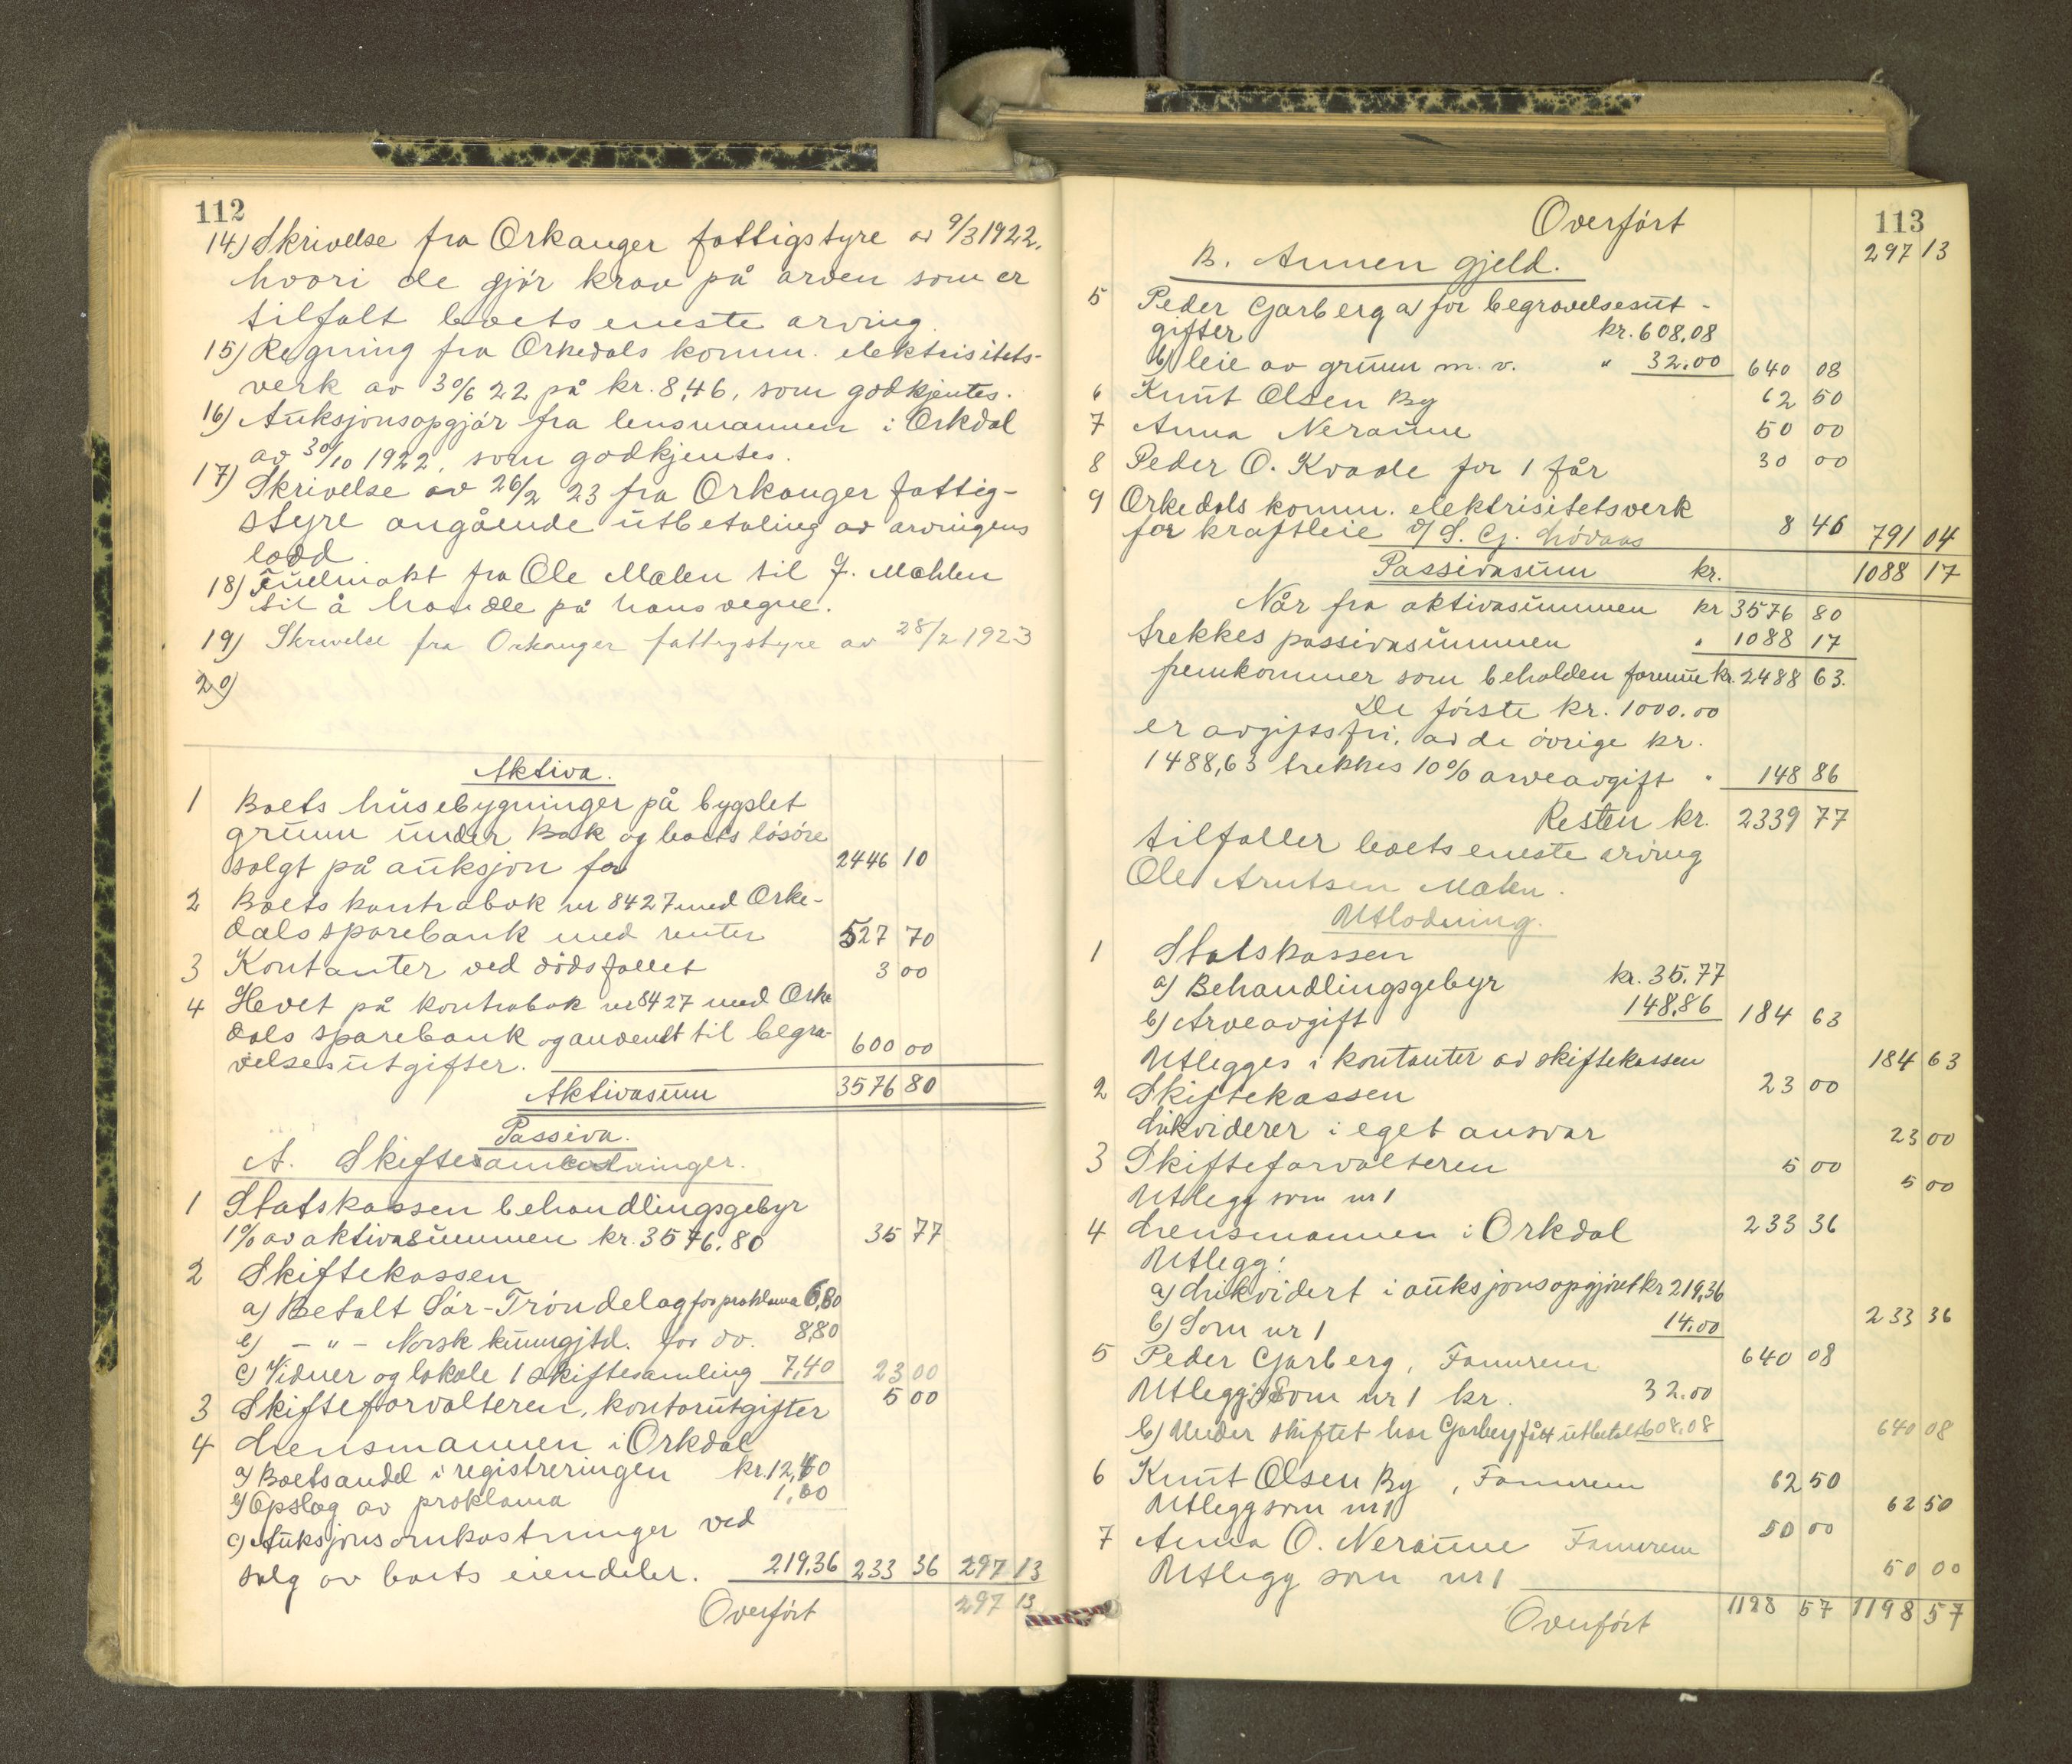 112
14) Skrivelse fra Orkanger fattigstyre av 9/3 1922,
hvori de gjør krav på arven som er
tilfalt boets eneste arving.
15) Regning fra Orkedals komm. elektrisitets-
verk av 30/6 22 på kr. 8,46, som godkjentes.
16) Auksjonsopgjør fra lensmannen i Orkdal
av 30/10 1922, som godkjentes.
17) Skrivelse av 26/2 23 fra Orkanger fattig-
styre angående utbetaling av arvingens
lodd.
18) Fullmakt fra Ole Mælen til J. Mæhlen
til å handle på hans vegne.
19) Skrivelse fra Orkanger fattigstyre av 28/2 1923
20)
Aktiva.
1 Boets husebygninger på bygslet
grunn under Bak og boets løsøre
solgt på auksjon for 2446 10
2 Boets kontrabok nr 8427 med Orke-
dals sparebank med renter 527 70
3 Kontanter ved dødsfallet 3 00
4 Hevet på kontrabok nr 8427 med Orke
dals sparebank og anvendt til begra-
velsesutgifter. 600 00
Aktivasum 3576 80
Passiva.
A. Skifteomkostninger.
1 Statskassen behandlingsgebyr
1% av aktivasummen kr. 3576,80 35 77
2 Skiftekassen
a) Betalt Sør-Trøndelag for proklama 6,80
b) - " - Norsk kunngjtd. for do. 8,80
c) Vidner og lokale 1 skiftesamling 7,40 23 00
3 Skifteforvalteren, kontorutgifter 5 00
4 Lensmannen i Orkdal
a) Boets andel i registreringen kr. 12,40
b) Opslag av proklama 1,60
c) Auksjonsomkostninger ved
salg av boets eiendeler. 219,36 233 36 297 13
Overført 297 13
113
Overført 297 13
B. Annen gjeld.
5 Peder Garberg a) for begravelsesut-
gifter kr. 608,08
b) leie av grunn m. v. " 32.00 640 08
6 Knut Olsen By 62 50
7 Anna Neraune 50 00
8 Peder O. Kvaale for 1 får 30 00
9 Orkedals komm. elektrisitetsverk
for kraftleie v/ S. G. Løvaas 8 46 791 04
Passivasum kr. 1088 17
Når fra aktivasummen kr 3576 80
trekkes passivasummen " 1088 17
fremkommer som beholden formue kr. 2488 63.
De første kr. 1000.00
er avgiftsfri, av de øvrige kr.
1488,63 trekkes 10% arveavgift " 148 86
Resten kr. 2339 77
tilfaller boets eneste arving
Ole Arntsen Mælen.
Utlodning.
1 Statskassen
a) Behandlingsgebyr kr. 35.77
b) Arveavgift 148,86 184 63
Utlegges i kontanter av skiftekassen 184 63
2 Skiftekassen 23 00
Likviderer i eget ansvar 23 00
3 Skifteforvalteren 5 00
Utlegg som nr 1 5 00
4 Lensmannen i Orkdal 233 36
Utlegg:
a) Likvidert i auksjonsopgjøret kr 219,36
b) Som nr 1 14.00 233 36
5 Peder Garberg, Fannrem 640 08
Utlegg: a) Som nr 1 kr. 32.00
b) Under skiftet har Garberg fått utbetalt 608.08 640 08
6 Knut Olsen By, Fannrem 62 50
Utlegg som nr 1 62 50
7 Anna O. Neraune Fannrem 50 00
Utlegg som nr 1 50 00
Overført 1198 57 1198 57